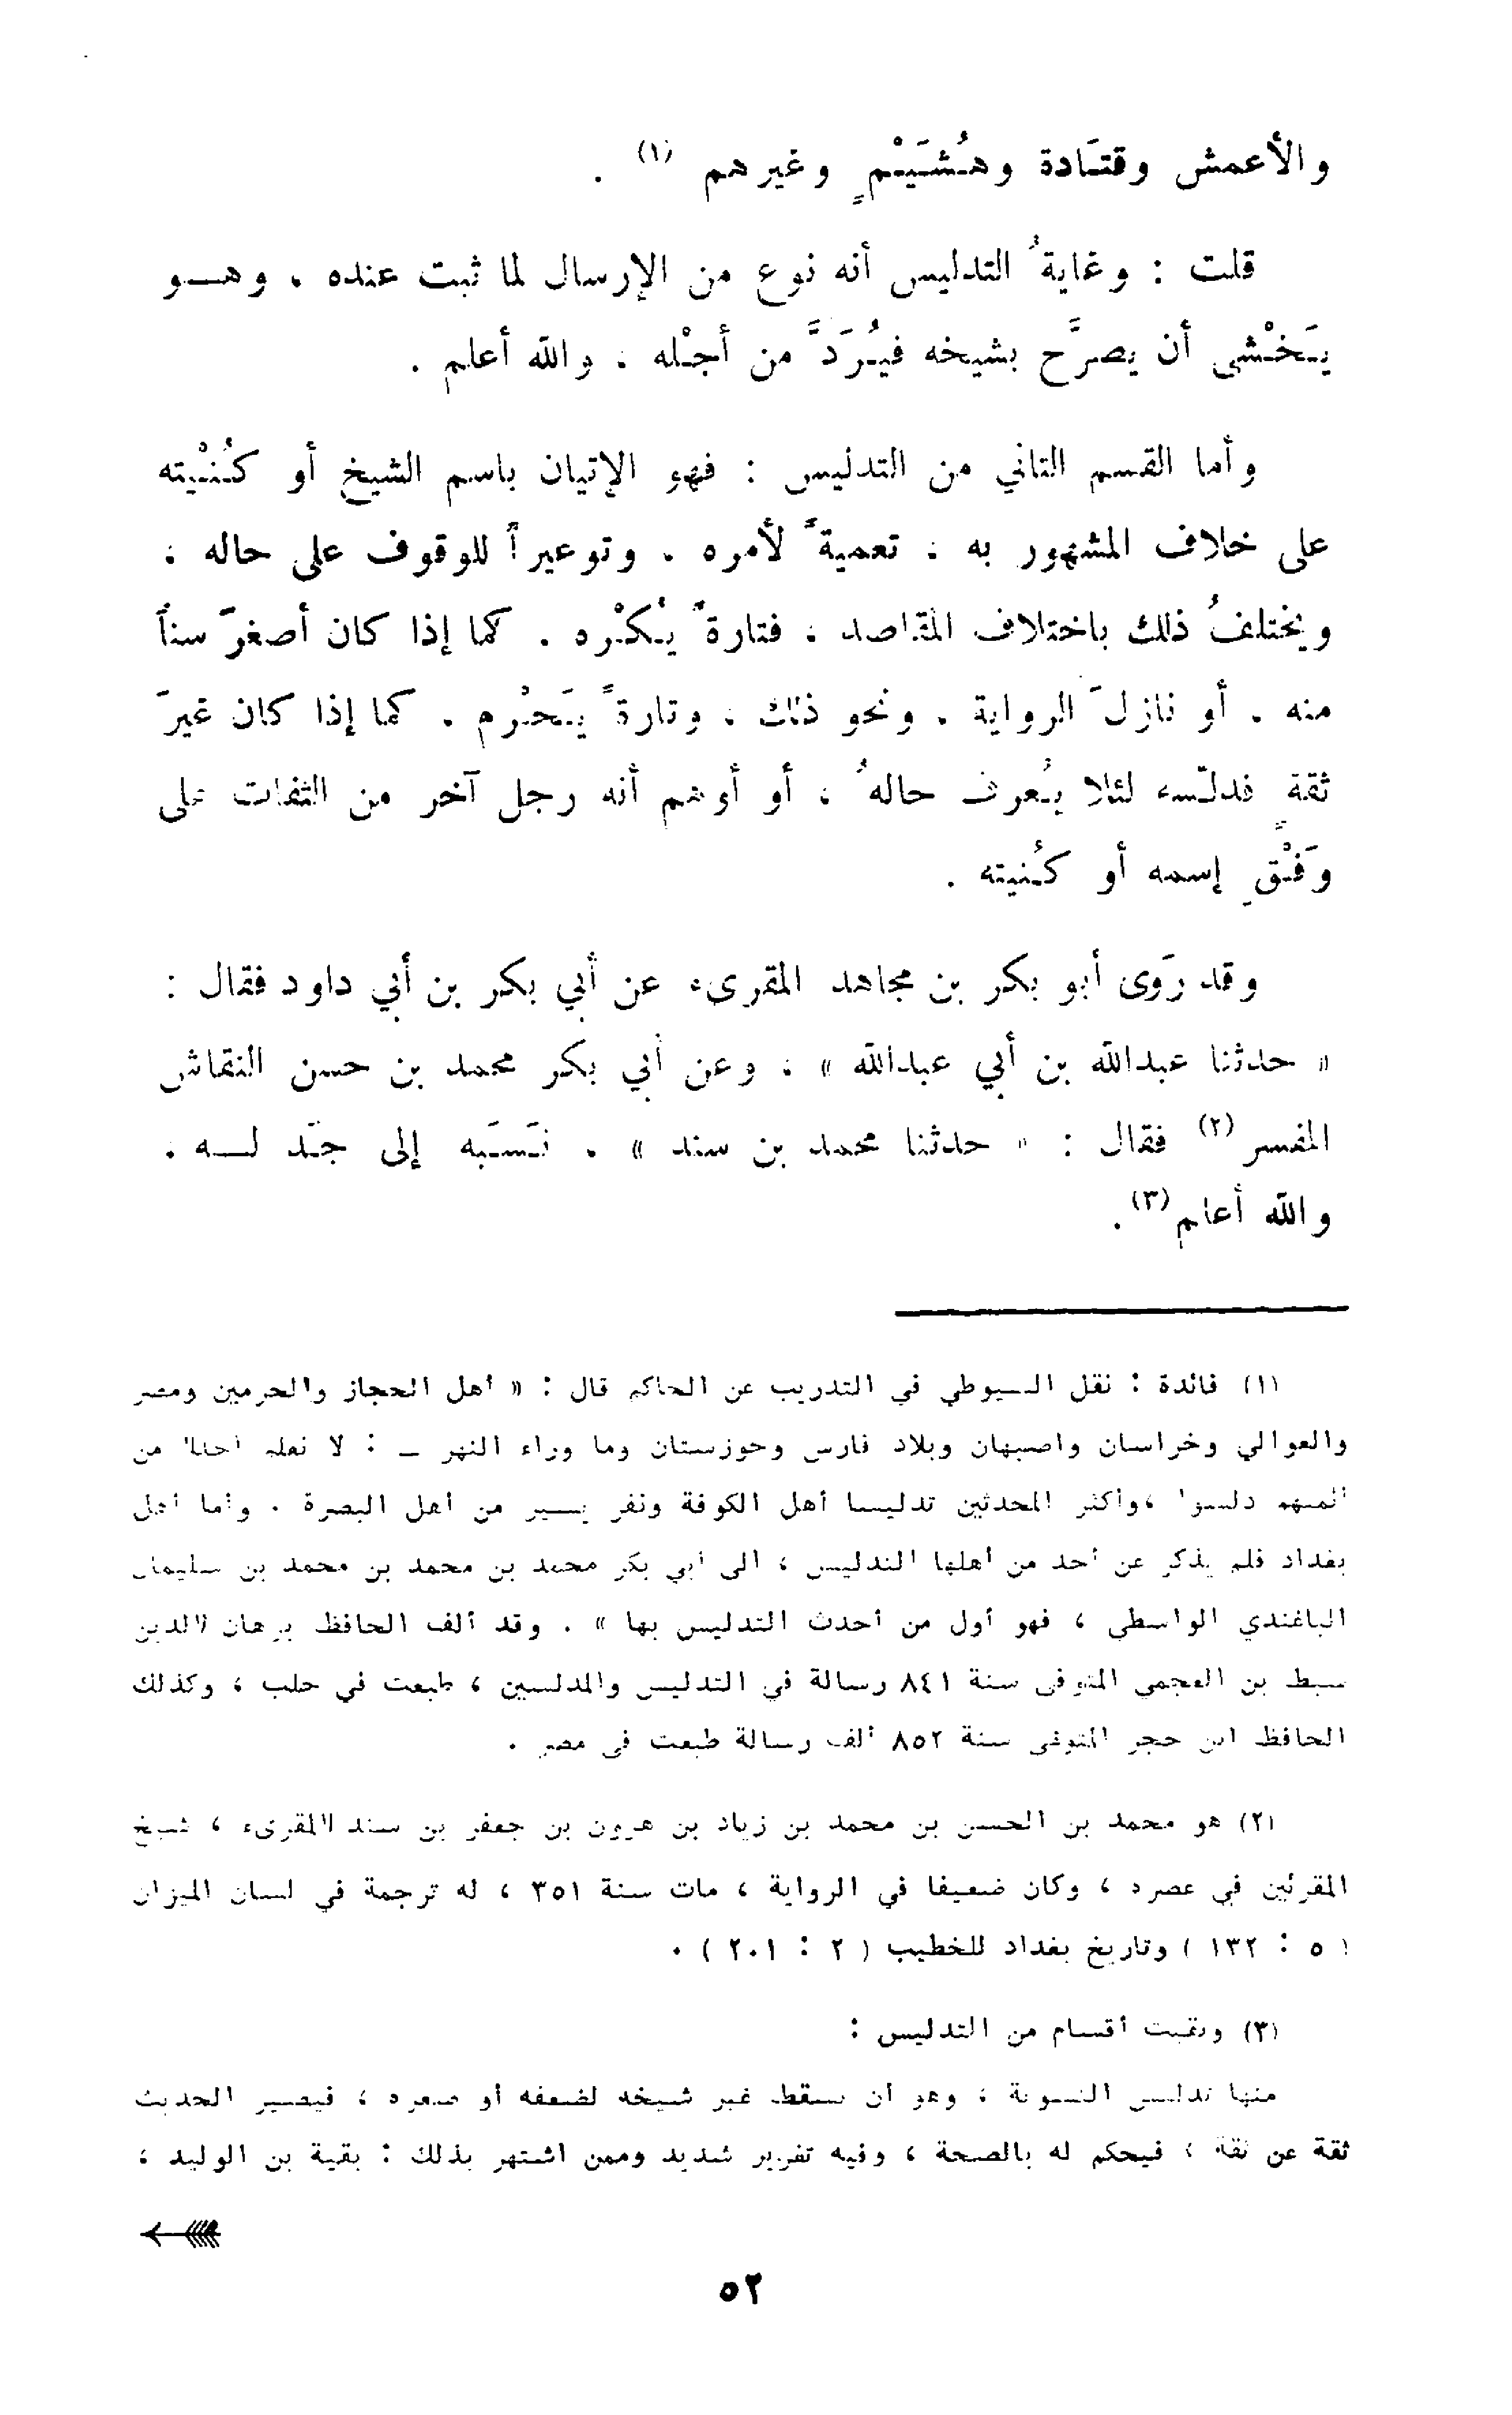 والأعمش وقتَادة وهُشَيْمٍ وغيرهم (١) .
قلت : وغايةُ التدليس أنه نوع من الإرسال لما ثبت عنده ، وهــو
يَخْشى أن يصرَّح بشيخه فيُرَدَّ من أجْله ، والله أعلم .
وأما القسم الثاني من التدليس : فهو الإتيان باسم الشيخ أو كُنْيته
على خلاف المشهور به ، تعميةً لأمره ، وتوعيراً للوقوف على حاله ،
ويختلفُ ذلك باختلاف المقاصد ، فتارةً يُكْره . كما إذا كان أصغرَ سناً
منه . أو نازلَ الرواية ، ونحو ذلك ، وتارةً يَحْرم ، كما إذا كان غيرَ
ثقةٍ فدلّسه لئلا يُعرف حالهُ ، أو أوهم أنه رجل آخر من الثقات على
وَفْقِ إسمه أو كُنيته .
وقد رَوى أبو بكر بن مجاهد المقرىء عن أبي بكر بن أبي داود فقال :
« حدثنا عبدالله بن أبي عبدالله » ، وعن أبي بكر محمد بن حسن النقاش
المفسر (٢) فقال : « حدثنا محمد بن سند » ، نَسَبَه إلى جَدّ لــه .
والله أعلم (٣) .
(١) فائدة : نقل السيوطي في التدريب عن الحاكم قال : « أهل الحجاز والحرمين ومصر
والعوالي وخراسان واصبهان وبلاد فارس وخوزستان وما وراء النهر – : لا نعلم أحدا من
أئمتهم دلسوا ، وأكثر المحدثين تدليسا أهل الكوفة ونفر يسير من أهل البصرة . وأما أهل
بغداد فلم يذكر عن أحد من أهلها التدليس ، الى أبي بكر محمد بن محمد بن محمد بن سليمان
الباغندي الواسطي ، فهو أول من أحدث التدليس بها » . وقد ألف الحافظ برهان الدين
سبط بن العجمي المتوفى سنة ٨٤١ رسالة في التدليس والمدلسين ، طبعت في حلب ، وكذلك
الحافظ ابن حجر المتوفى سنة ٨٥٢ ألف رسالة طبعت في مصر .
(٢) هو محمد بن الحسن بن محمد بن زياد بن هرون بن جعفر بن سند المقرىء ، شيخ
المقرئين في عصره ، وكان ضعيفا في الرواية ، مات سنة ٣٥١ ، له ترجمة في لسان الميزان
( ٥ : ١٣٢ ) وتاريخ بغداد للخطيب ( ٢ : ٢٠١ ) .
(٣) وبقيت أقسام من التدليس :
منها تدليس التسوية ، وهو أن يسقط غير شيخه لضعفه أو صغره ، فيصير الحديث
ثقة عن ثقة ، فيحكم له بالصحة ، وفيه تغرير شديد وممن اشتهر بذلك : بقية بن الوليد ،
٥٢